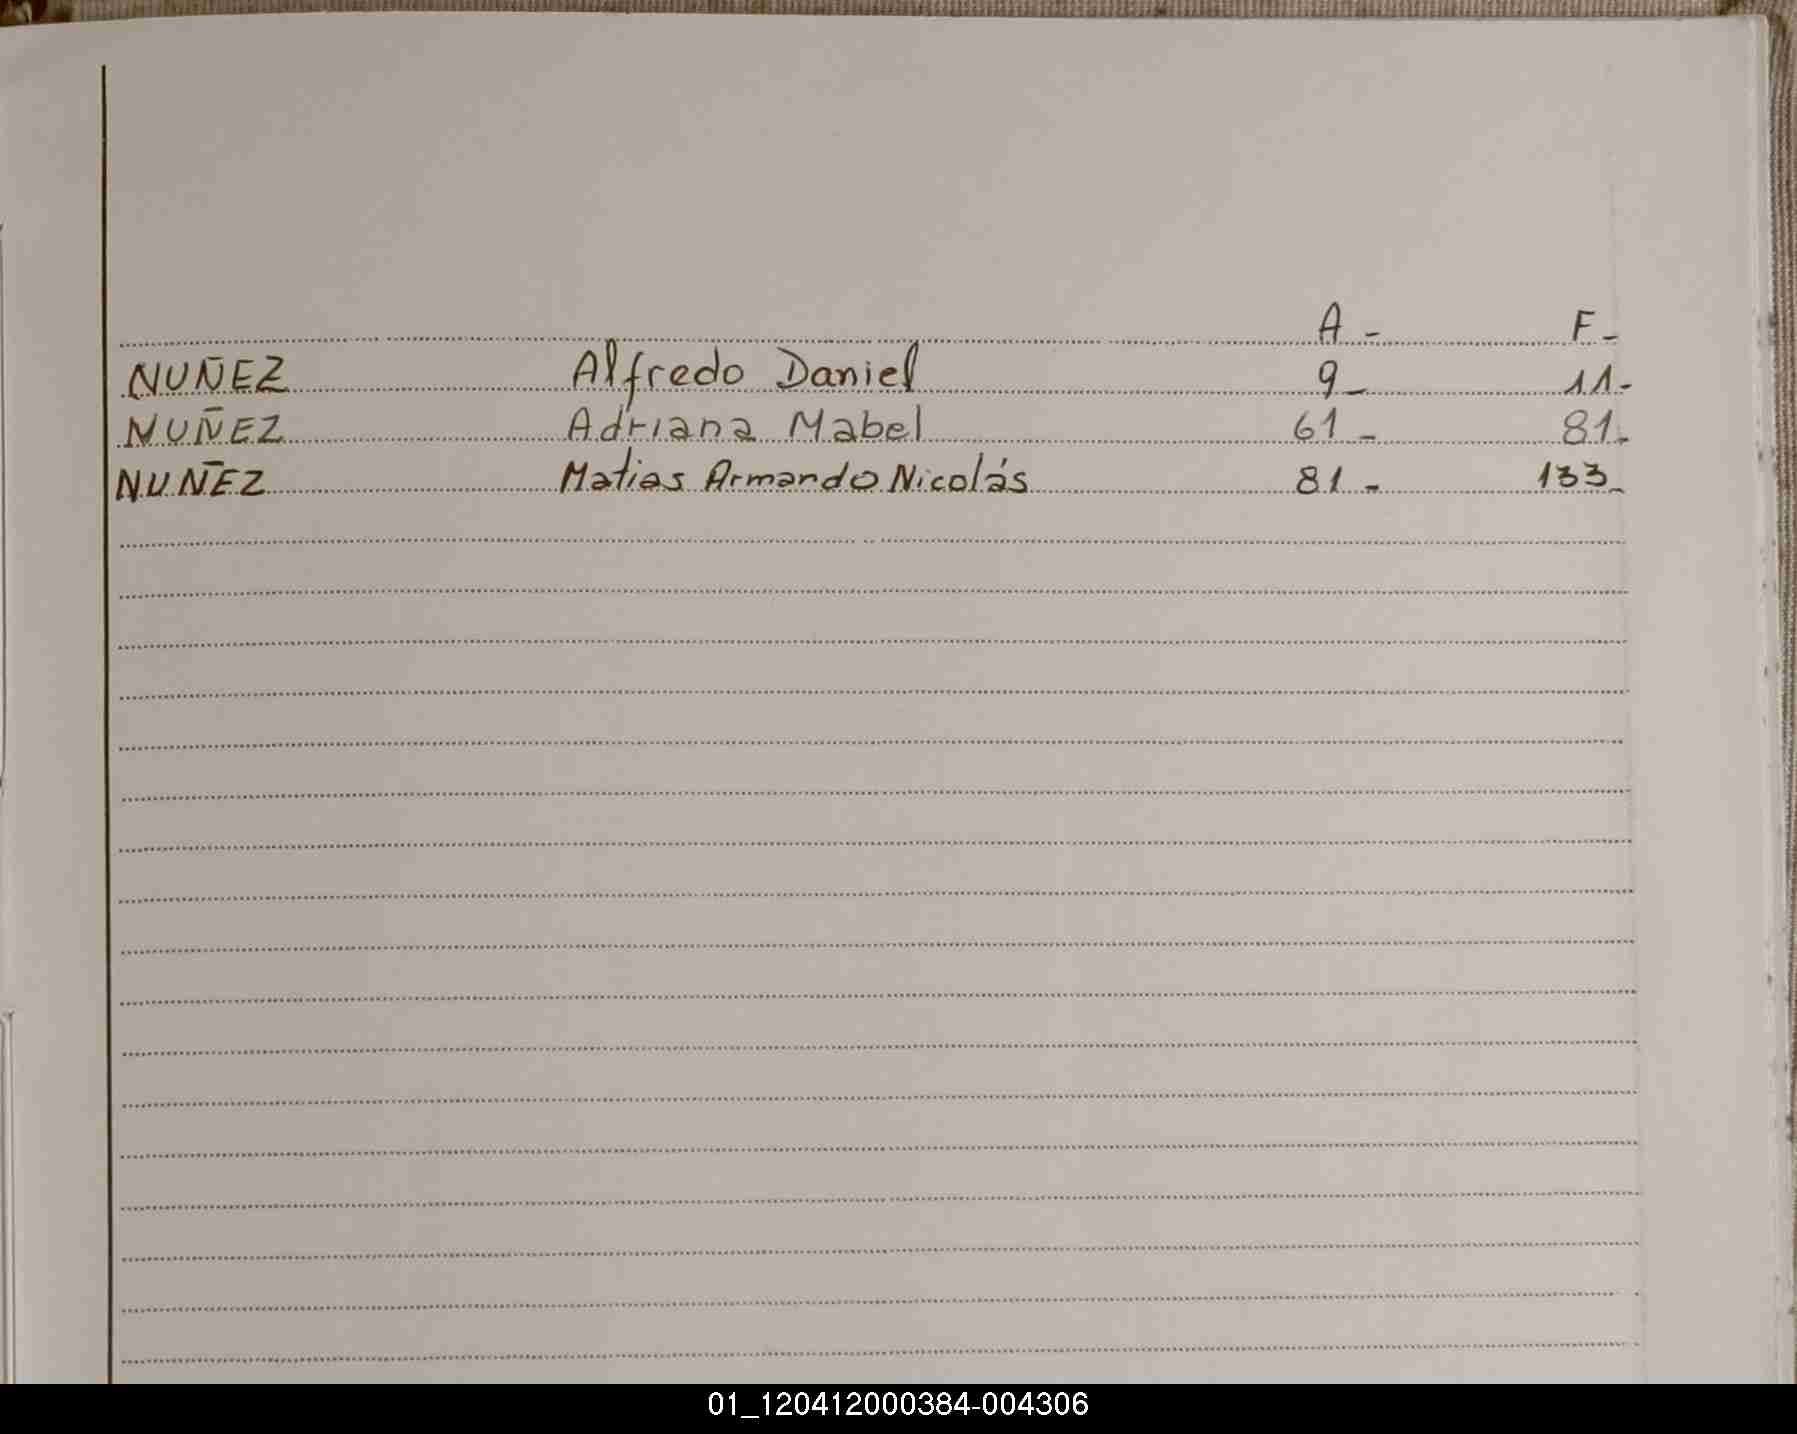 A - F -
NUÑEZ Alfredo Daniel 9 - 11 -
NUÑEZ Adriana Mabel 61 - 81 -
NUÑEZ Matias Armando Nicolás 81 - 133 -
01_120412000384-004306